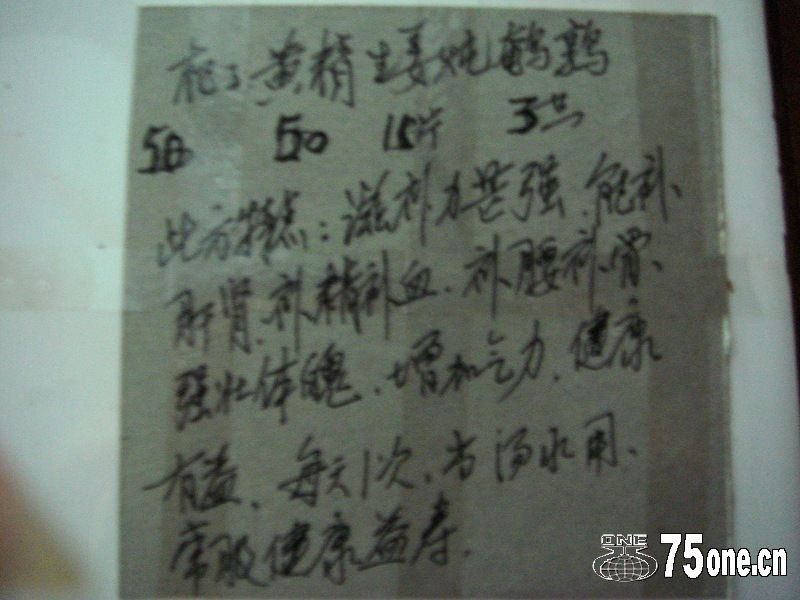 杞子黄精生姜炖鹌鹑
50 50 15片 3只
此方特点：滋补力甚强、能补
肝肾、补精补血、补腰补肾、
强壮体魄、增加气力、健康
有益、每天1次、当汤水用、
常服健康益寿.
ONE 75one.cn